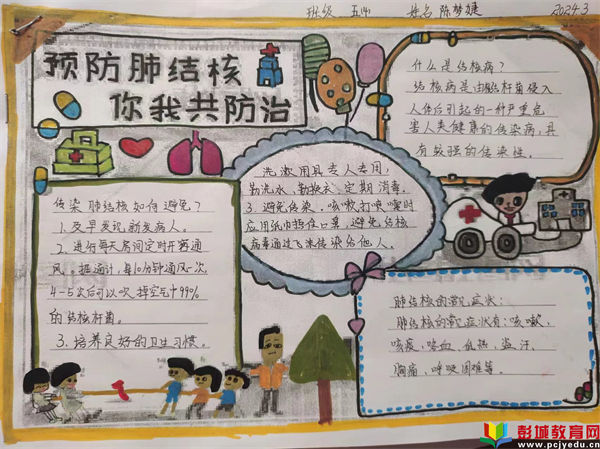 班级 五(4) 姓名 陈梦婕 2024.3
预防肺结核
你我共防治
什么是结核病?
结核病是由结核杆菌侵入
人体后引起的一种严重危
害人类健康的传染病,具
有较强的传染性。
洗漱用具专人专用,
勤洗水、勤换衣、定期消毒。
3.避免传染。咳嗽打喷嚏时
应用纸巾捂住口鼻,避免结核
病毒通过飞沫传染给他人。
传染肺结核如何避免?
1.及早发现,新发病人。
2.进行每天房间定时开窗通
风。据通计,每10分钟通风一次,
4-5次后可以吹掉空气中99%
的结核杆菌。
3.培养良好的卫生习惯。
肺结核的常见症状:
肺结核的常见症状有:咳嗽、
咳痰、咯血、低热、盗汗、
胸痛、呼吸困难等。
彭城教育网
www.pcjyedu.cn